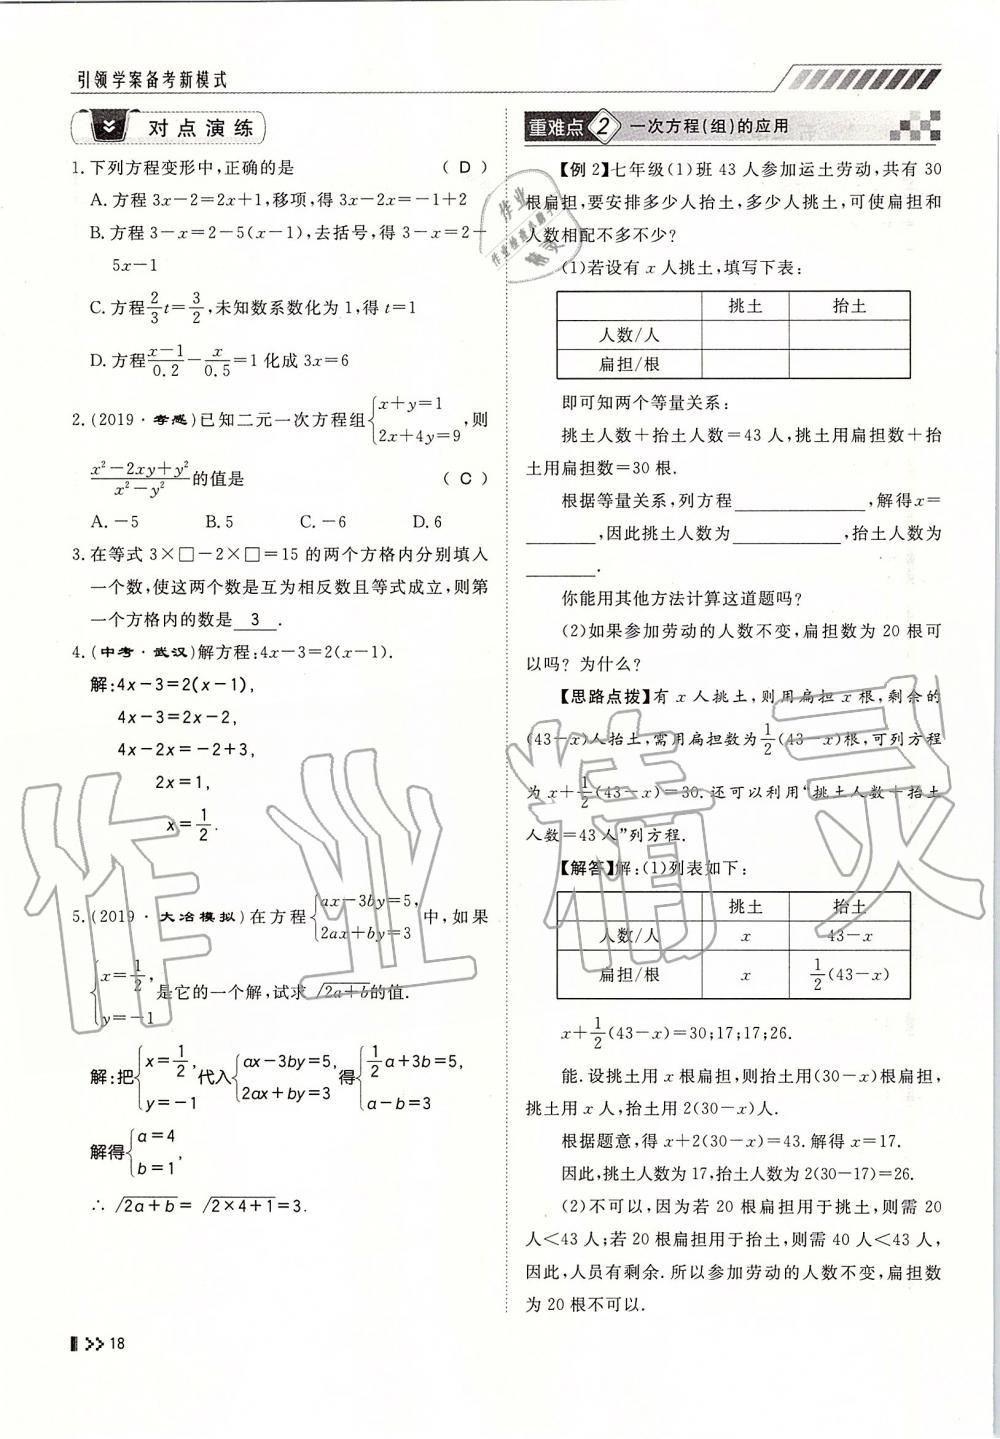 引领学案备考新模式
对点演练
1.下列方程变形中,正确的是 ( D )
A.方程 3x-2=2x+1,移项,得 3x-2x=-1+2
B.方程 3-x=2-5(x-1),去括号,得 3-x=2-
5x-1
C.方程2/3t=3/2,未知数系数化为 1,得 t=1
D.方程(x-1)/0.2-x/0.5=1化成 3x=6
2.(2019·孝感)已知二元一次方程组{x+y=1, 2x+4y=9,则
(x²-2xy+y²)/(x²-y²)的值是 ( C )
A.-5 B.5 C.-6 D.6
3.在等式 3×□-2×□=15 的两个方格内分别填入
一个数,使这两个数是互为相反数且等式成立,则第
一个方格内的数是 3 .
4.(中考·武汉)解方程:4x-3=2(x-1).
解:4x-3=2(x-1),
4x-3=2x-2,
4x-2x=-2+3,
2x=1,
x=1/2.
5.(2019·大冶模拟)在方程{ax-3by=5, 2ax+by=3中,如果
{x=1/2, y=-1是它的一个解,试求√(2a+b)的值.
解:把{x=1/2, y=-1代入{ax-3by=5, 2ax+by=3得{1/2a+3b=5, a-b=3
解得{a=4 b=1,
∴√(2a+b)=√(2×4+1)=3.
18
重难点2 一次方程(组)的应用
【例 2】七年级(1)班 43 人参加运土劳动,共有 30
根扁担,要安排多少人抬土,多少人挑土,可使扁担和
人数相配不多不少?
(1)若设有 x 人挑土,填写下表:
挑土 抬土
人数/人
扁担/根
即可知两个等量关系:
挑土人数+抬土人数=43 人,挑土用扁担数+抬
土用扁担数=30 根.
根据等量关系,列方程______,解得x=
______,因此挑土人数为______,抬土人数为
______.
你能用其他方法计算这道题吗?
(2)如果参加劳动的人数不变,扁担数为 20 根可
以吗? 为什么?
【思路点拨】有 x 人挑土,则用扁担 x 根,剩余的
(43-x)人抬土,需用扁担数为1/2(43-x)根,可列方程
为 x+1/2(43-x)=30.还可以利用“挑土人数+抬土
人数=43 人”列方程.
【解答】解:(1)列表如下:
挑土 抬土
人数/人 x 43-x
扁担/根 x 1/2(43-x)
x+1/2(43-x)=30;17;17;26.
能.设挑土用 x 根扁担,则抬土用(30-x)根扁担,
挑土用 x 人,抬土用 2(30-x)人.
根据题意,得 x+2(30-x)=43.解得 x=17.
因此,挑土人数为 17,抬土人数为 2(30-17)=26.
(2)不可以,因为若 20 根扁担用于挑土,则需 20
人<43 人;若 20 根扁担用于抬土,则需 40 人<43 人,
因此,人员有剩余.所以参加劳动的人数不变,扁担数
为 20 根不可以.
作业精灵